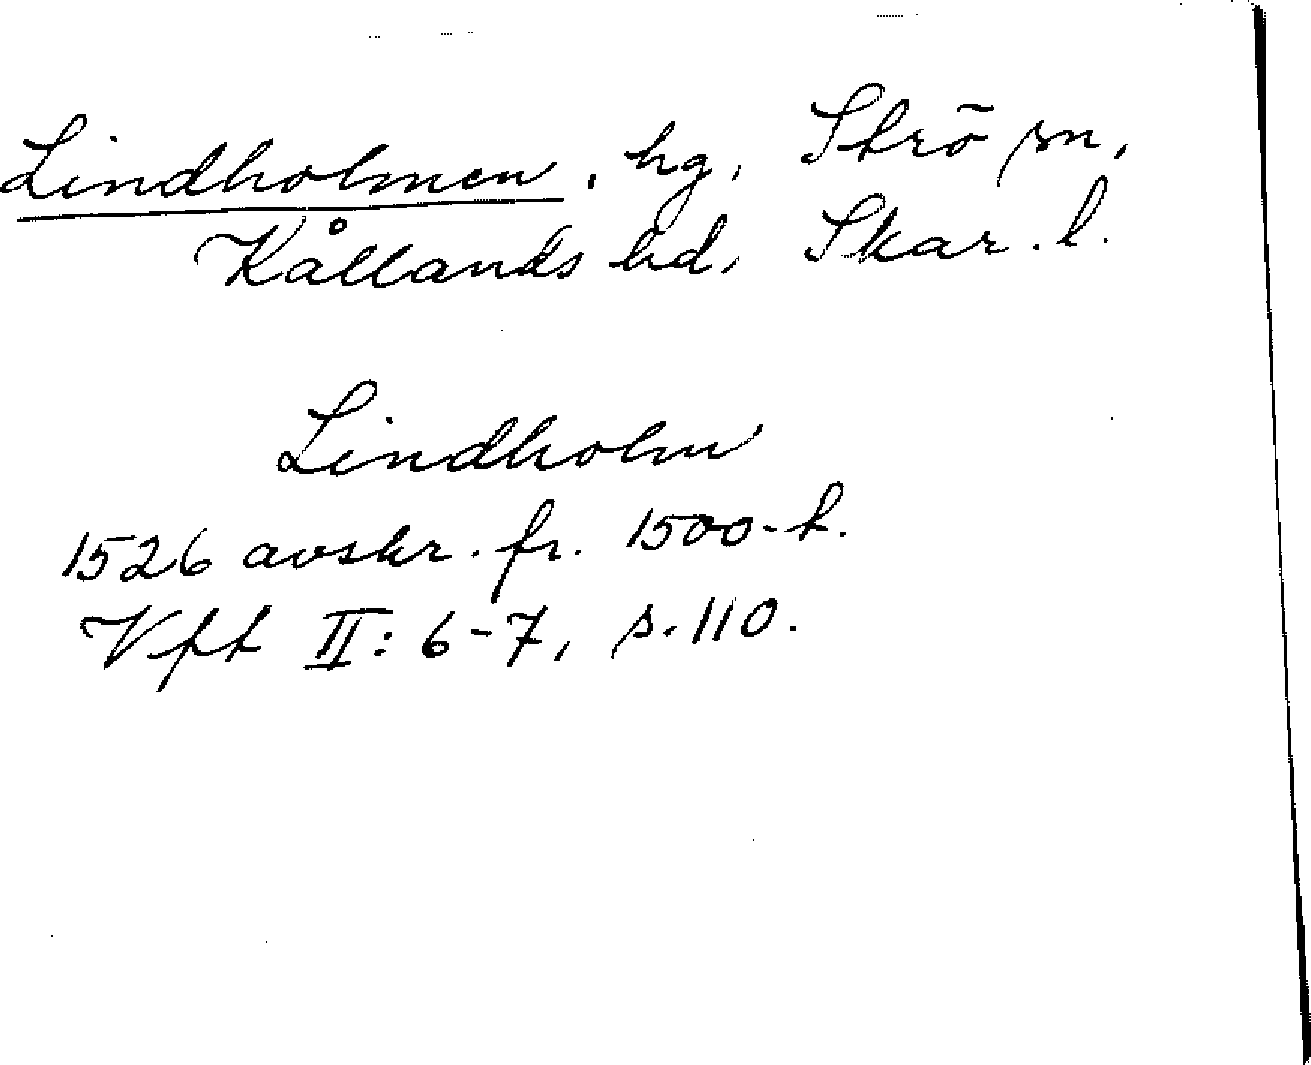 Lindholmen, hg, Strö sn,
Kållands hd, Skar. l.
Lindholm
1526 avskr. fr. 1500-t.
Vfft II: 6-7, s. 110.